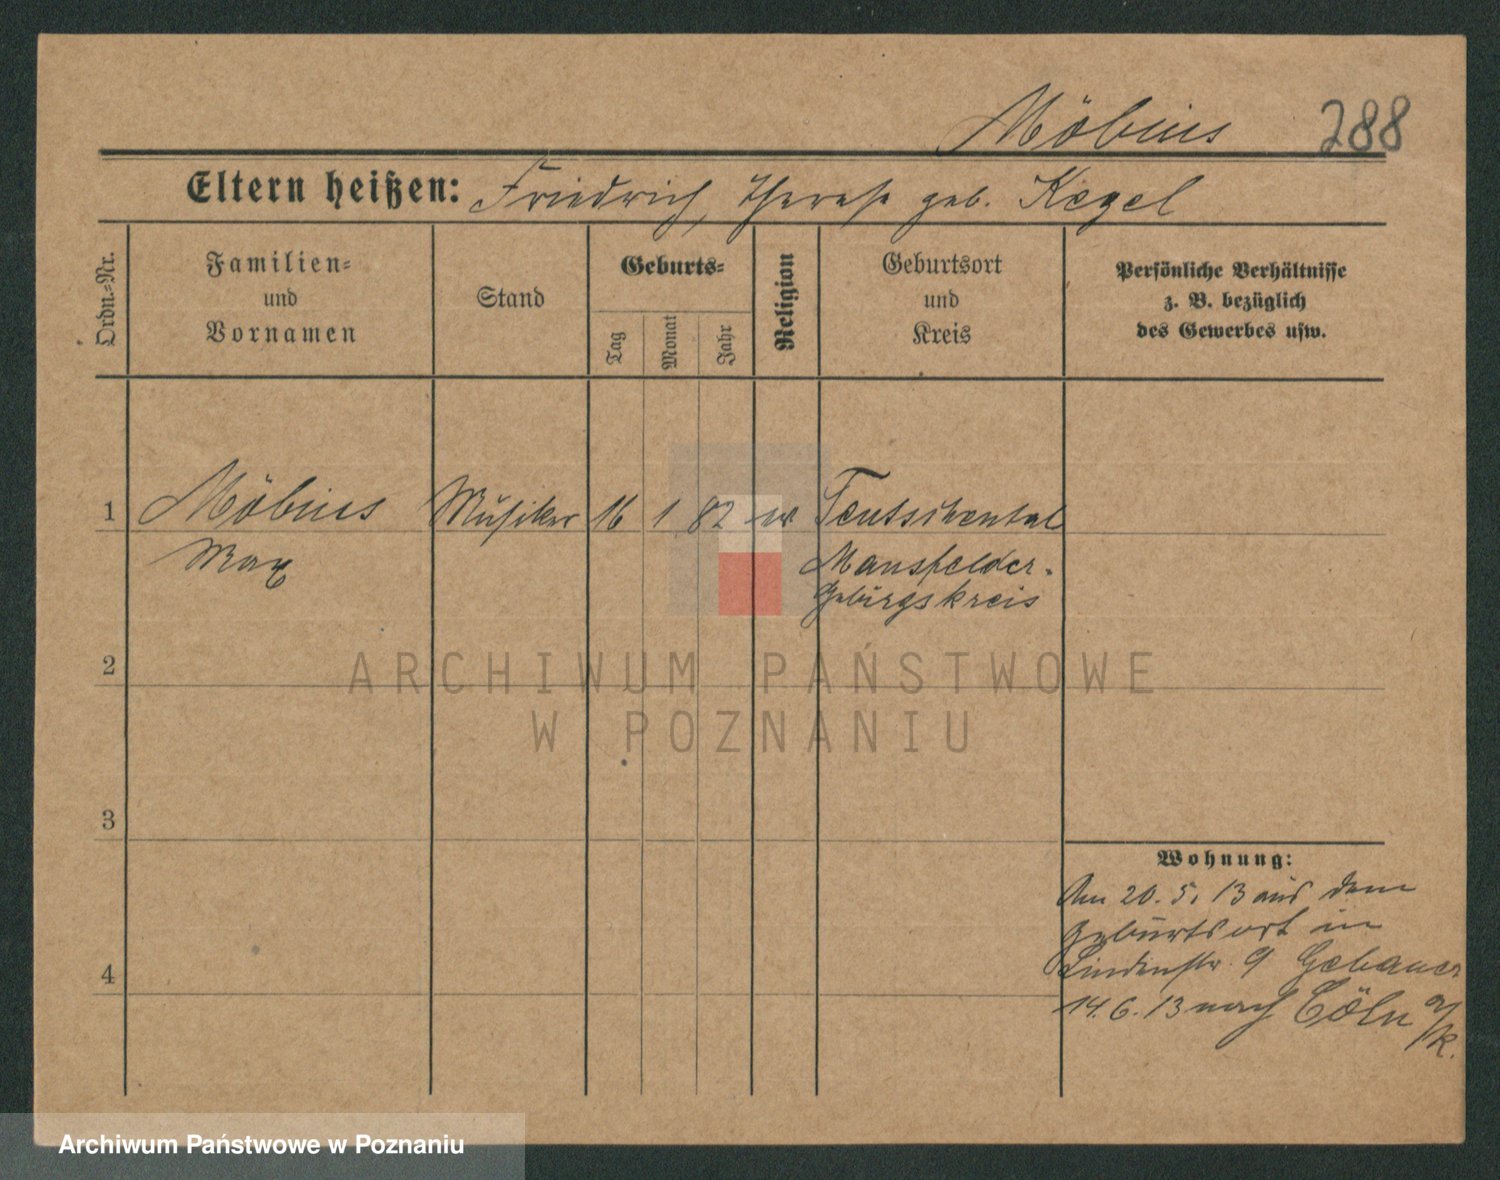 Möbius 288
Eltern heißen: Friedrich, Therese geb. Kegel
Ordn.=Nr.
Familien=
und
Vornamen
Stand
Geburts=
Tag
Monat
Jahr
Religion
Geburtsort
und
Kreis
Persönliche Verhältnisse
z. B. bezüglich
des Gewerbes usw.
1 Möbius Musiker 16 1 82 ev Teutschental
Max Mansfelder-
Gebirgskreis
ARCHIWUM PAŃSTWOWE
W POZNANIU
2
3
Wohnung:
Am 20. 5. 13 aus dem
Geburtsort in
Lindenstr. 9 Gebauer
4
14. 6. 13 nach Cöln a/R.
Archiwum Państwowe w Poznaniu